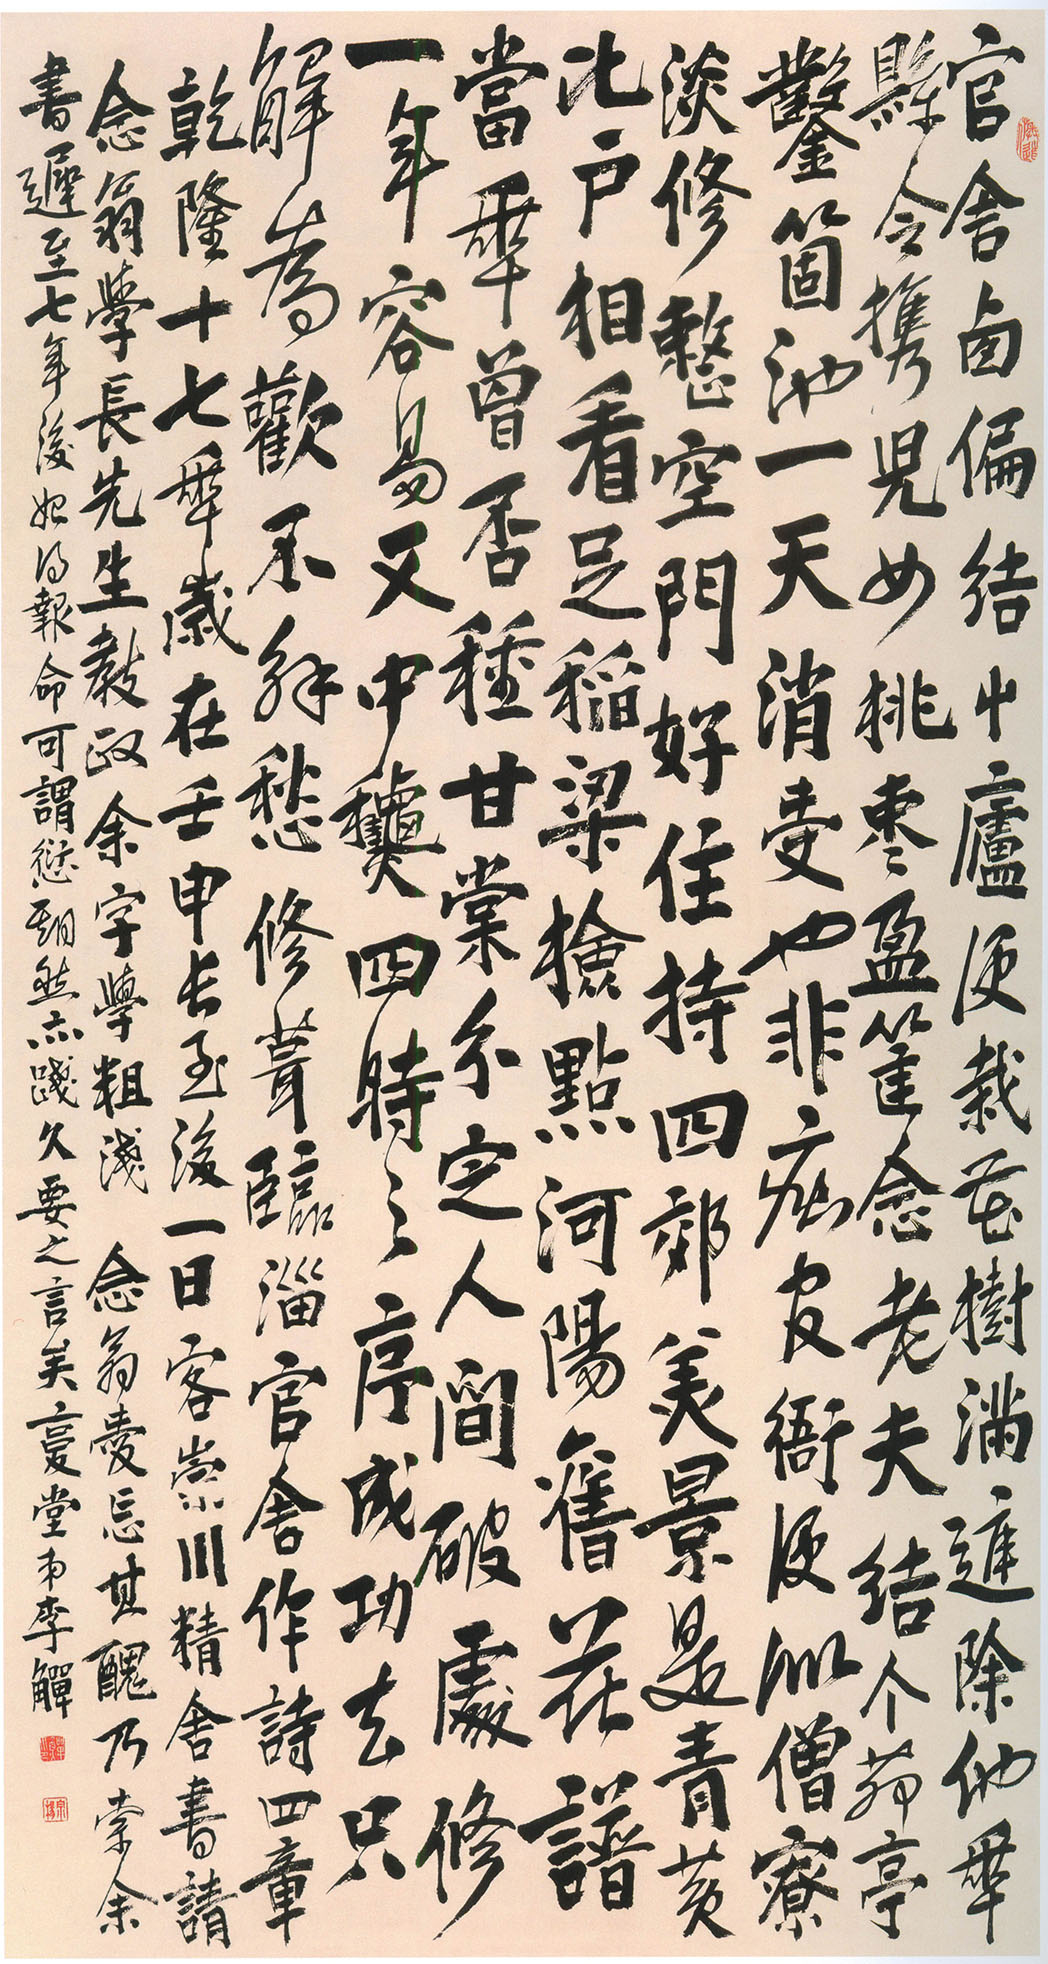 官舍卤偏結屮廬便栽花樹滿進除他年
縣令攜児女桃枣盈筐念老夫結个茆亭
鑿箇池一天消受也非疵官衙便似僧寮
淡修整空門好住持四郊美景是青黄
比户相看足稲粱檢點河陽舊花譜
當年曾否種甘棠分定人間破處修
一年容易又中龝四時之序成功去只
解為歡不解愁修葺臨淄官舍作詩四章
乾隆十七年歲在壬申長至後一日客崇川精舍書請
念翁學長先生教政余字學粗淺念翁愛忘其醜乃索余
書遲至七年後始得報命可謂愆期然亦踐久要之言矣憂堂弟李觶